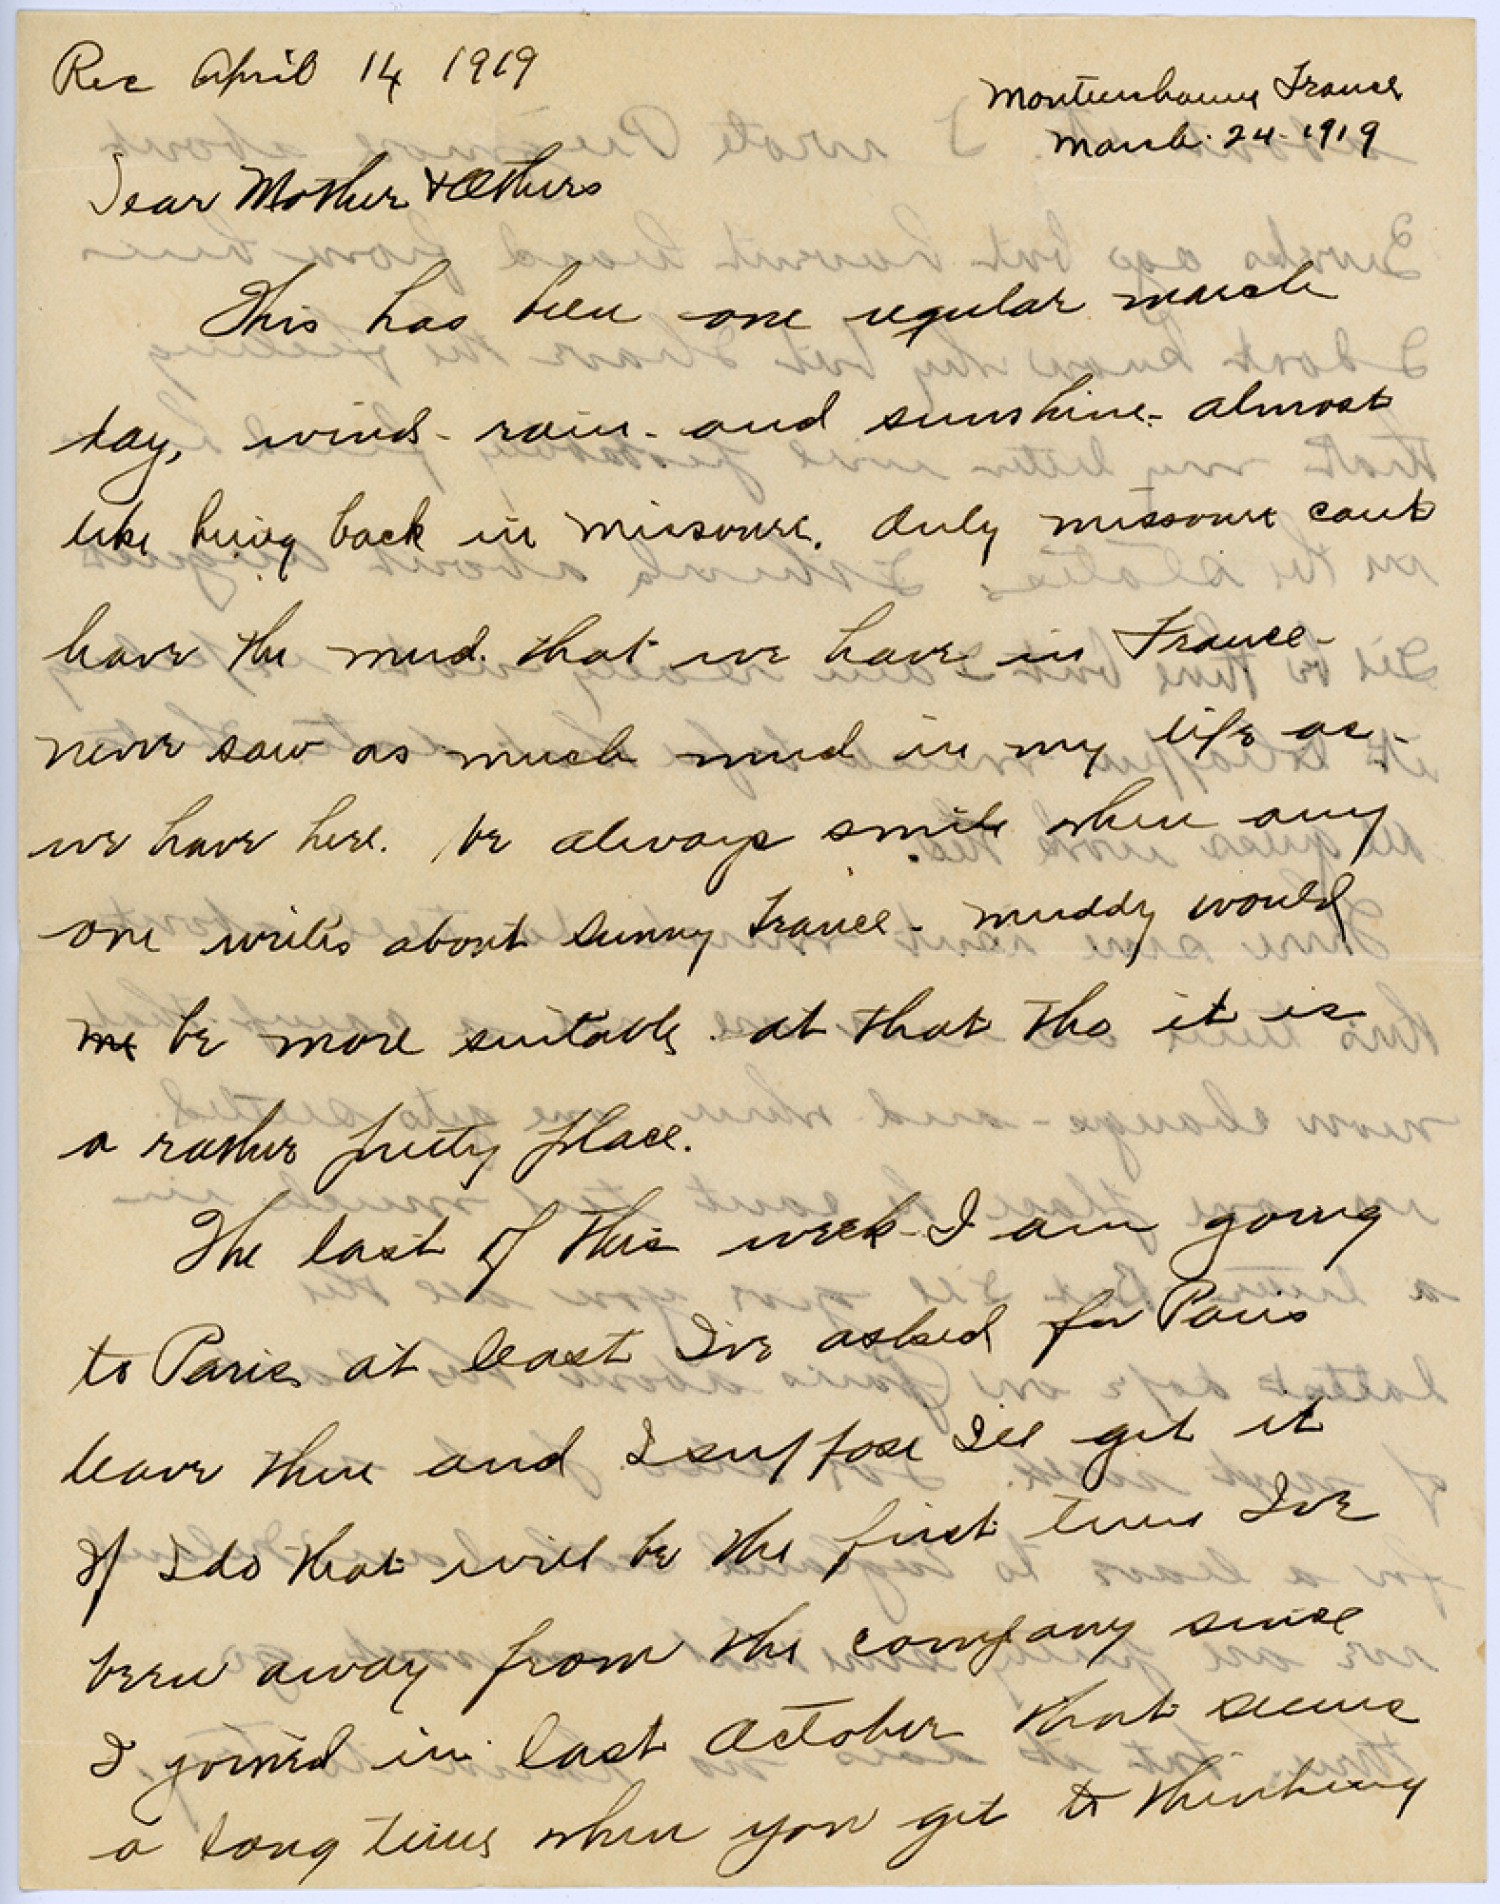 Rec April 14 1919
France
March. 24-1919
Dear Mother & Others
This has been one regular march
day, wind- rain- and sunshine- almost
like being back in Missouri. Only Missouri cant
have the mud. that we have in France-
never saw as much mud in my life as-
we have here. We always smile when any
one writes about sunny France- muddy would
be more suitable. at that tho it is
a rather pretty place.
The last of this week I am going
to Paris at least I've asked for Paris
leave there and I suppose I'll get it
If I do that will be the first time I've
been away from the company since
I joined in last October that seems
a long time when you get to thinking